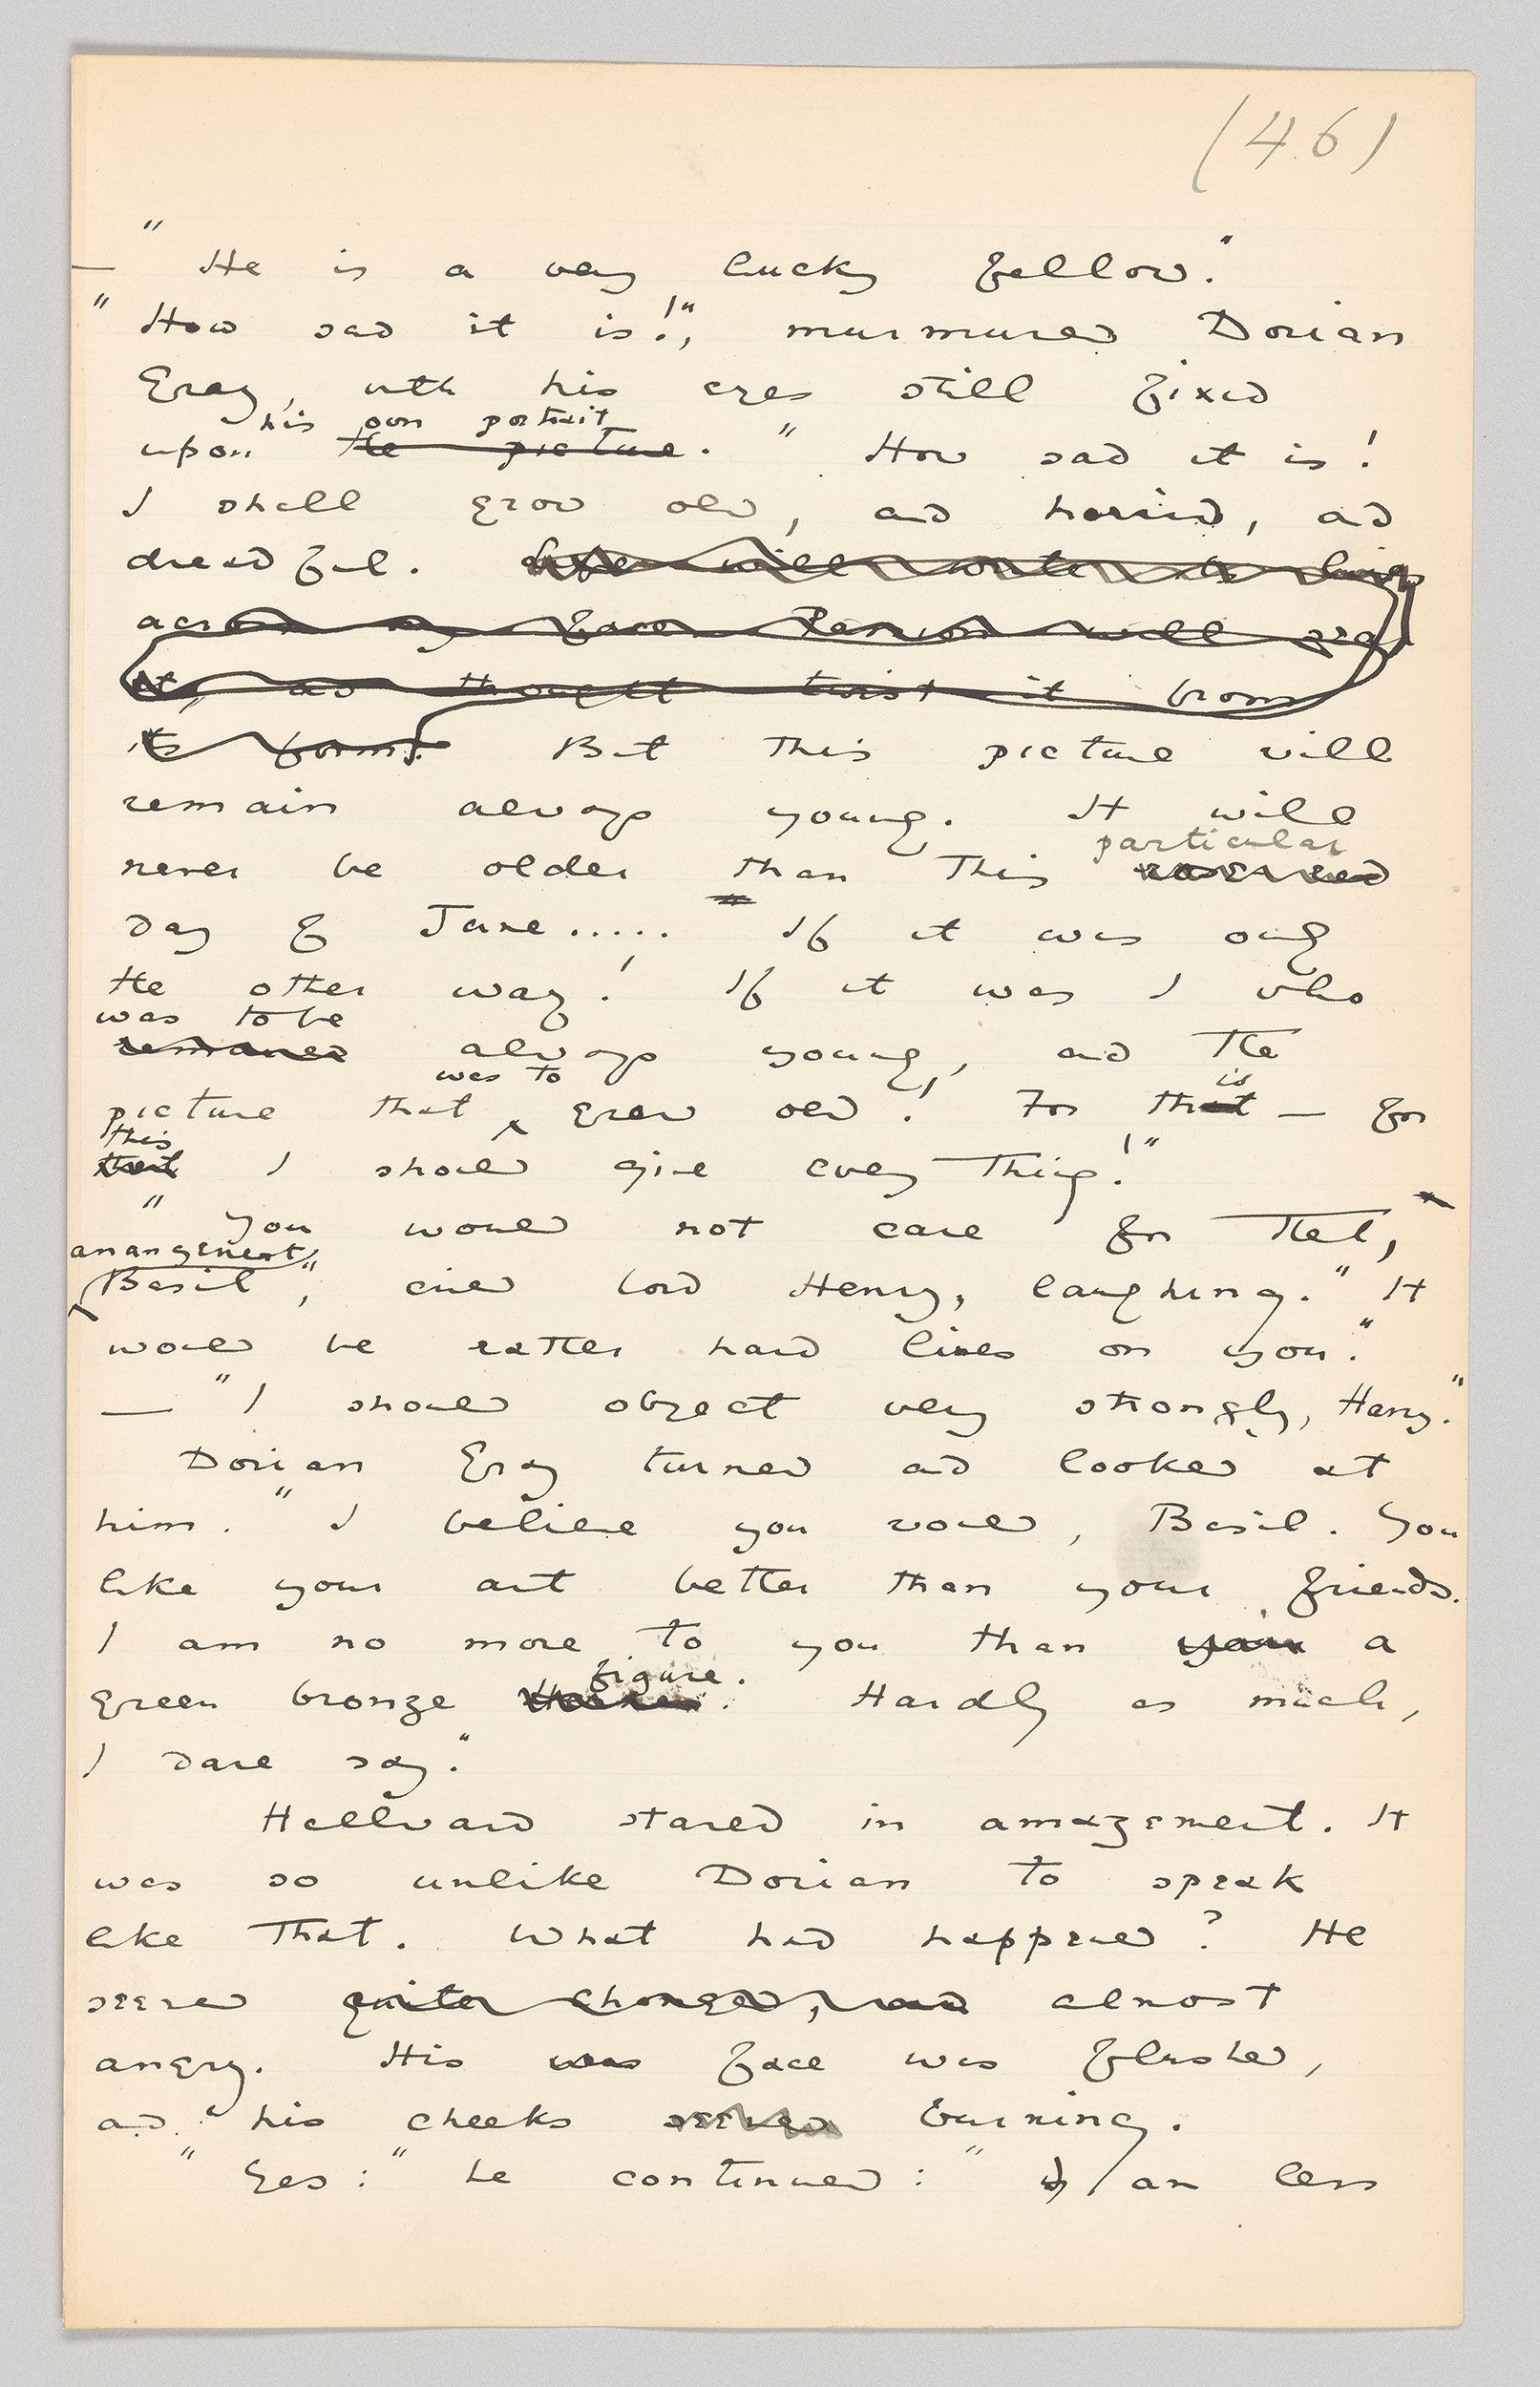 (46)
— " He is a very lucky fellow."
" How sad it is!", murmured Dorian
Gray, with his eyes still fixed
his own portrait
upon the picture. " How sad it is!
I shall grow old, and horrid, and
dreadful. Life will write its lines
across my face. Passion will
it, and thought twist it from
its form. But this picture will
remain always young. It will
particular
never be older than this
day of June..... If it was only
the other way! If it was I who
was to be
remained always young, and the
was to
picture that grew old! For that is — for
this
that I should give everything!"
" You would not care for that,
arrangement,
Basil", cried Lord Henry, laughing. " It
would be rather hard lines on you."
— " I should object very strongly, Harry."
Dorian Gray turned and looked at
him. " I believe you would, Basil. You
like your art better than your friends.
I am no more to you than your a
figure.
green bronze Hardly as much,
I dare say."
Hallward stared in amazement. It
was so unlike Dorian to speak
like that. What had happened? He
seemed quite changed, and almost
angry. His was face was flushed,
and his cheeks seemed burning.
" Yes:" he continued: " I am less